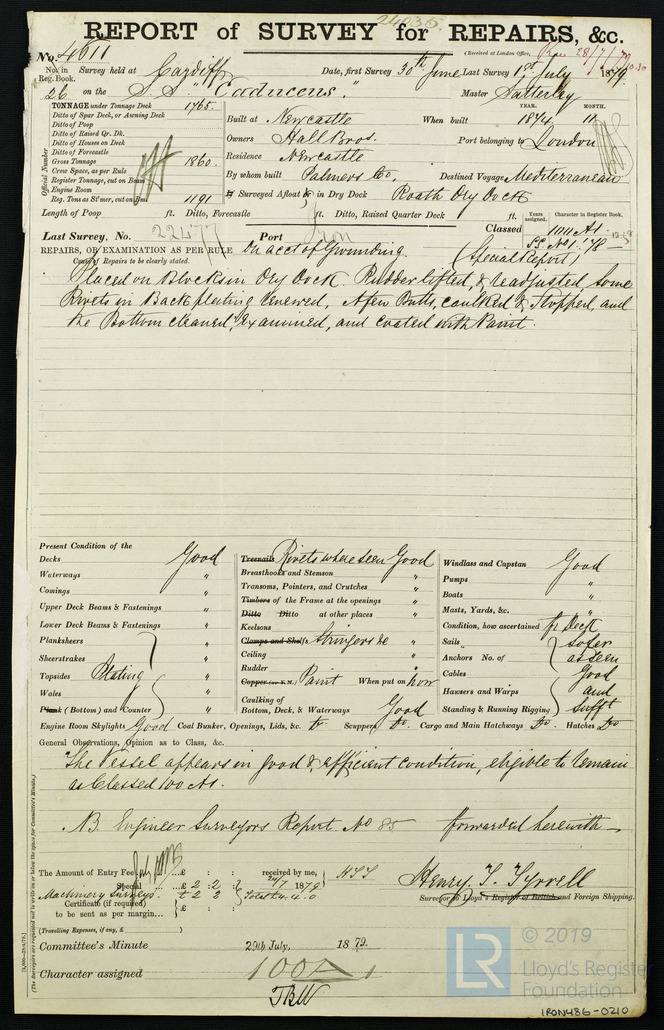 24036
REPORT of SURVEY for REPAIRS, &c.
No. 4611
(Received at London Office, 28/7/79
No. in Reg. Book. 26 Survey held at Cardiff Date, first Survey 30th June Last Survey 1st July 1879
on the S.S. Master Satterley
TONNAGE under Tonnage Deck 1765.
Ditto of Spar Deck, or Awning Deck
Ditto of Poop
Ditto of Raised Qr. Dk.
Ditto of Houses on Deck
Ditto of Forecastle
Gross Tonnage 1860.
Crew Space, as per Rule
Register Tonnage, cut on Beam
Engine Room
Reg. Tons as St'mer, cut on Bm 1191
Official Number
Built at Newcastle When built YEAR. 1874 MONTH. 11
Owners Hall Bros. Port belonging to London
Residence Newcastle
By whom built Palmers Co. Destined Voyage Mediterranean
If Surveyed Afloat or in Dry Dock Roath Dry Dock
Length of Poop ft. Ditto, Forecastle ft. Ditto, Raised Quarter Deck ft.
Years assigned. Character in Register Book.
Classed 100 A1
Last Survey, No. 22477 Port
S.S. No 1. '78
REPAIRS, OR EXAMINATION AS PER RULE On acct of Grounding. (Special Report)
Cause of Repairs to be clearly stated.
Placed on Blocks in Dry Dock. Rudder lifted, & readjusted, some
Rivets in Back plating renewed, A few Butts, caulked & stopped, and
the Bottom cleaned, examined, and coated with Paint.
Present Condition of the
Decks Good
Waterways "
Comings "
Upper Deck Beams & Fastenings "
Lower Deck Beams & Fastenings "
Planksheers "
Sheerstrakes "
Topsides Plating "
Wales "
Plank (Bottom) and Counter "
Treenails Rivets where seen Good
Breasthooks and Stemson "
Transoms, Pointers, and Crutches "
Timbers of the Frame at the openings "
Ditto Ditto at other places "
Keelsons "
Clamps and Shelfs Stringers &c "
Ceiling "
Rudder "
Copper (or Y.M.) Paint When put on now
Caulking of
Bottom, Deck, & Waterways Good
Windlass and Capstan Good
Pumps "
Boats "
Masts, Yards, &c. "
Condition, how ascertained fr Deck
Sails so far
Anchors No. of as seen
Cables Good
Hawsers and Warps and
Standing & Running Rigging sufft
Engine Room Skylights Good Coal Bunker, Openings, Lids, &c. Do Scuppers Do. Cargo and Main Hatchways Do. Hatches Do
General Observations, Opinion as to Class, &c.
The Vessel appears in good & efficient condition, eligible to remain
as Classed 100 A1.
NB. Engineer Surveyors Report. No 85 forwarded herewith
The Amount of Entry Fee ...£ : : received by me,
Special ...£ 2 : 2 : 24/7 1879
Machinery Surveys. £ 2 2 Total £4.4.0
Certificate (if required)
to be sent as per margin....
(Travelling Expenses, if any, £ )
Henry T. Tyrrell
Surveyor to Lloyd's Register of British and Foreign Shipping.
Committee's Minute 29th July, 1879.
Character assigned 100 A 1
(The Surveyors are requested not to write on or below the space for Committee's Minute.)
© 2019
LR
Lloyd's Register
Foundation
IRON486-0210